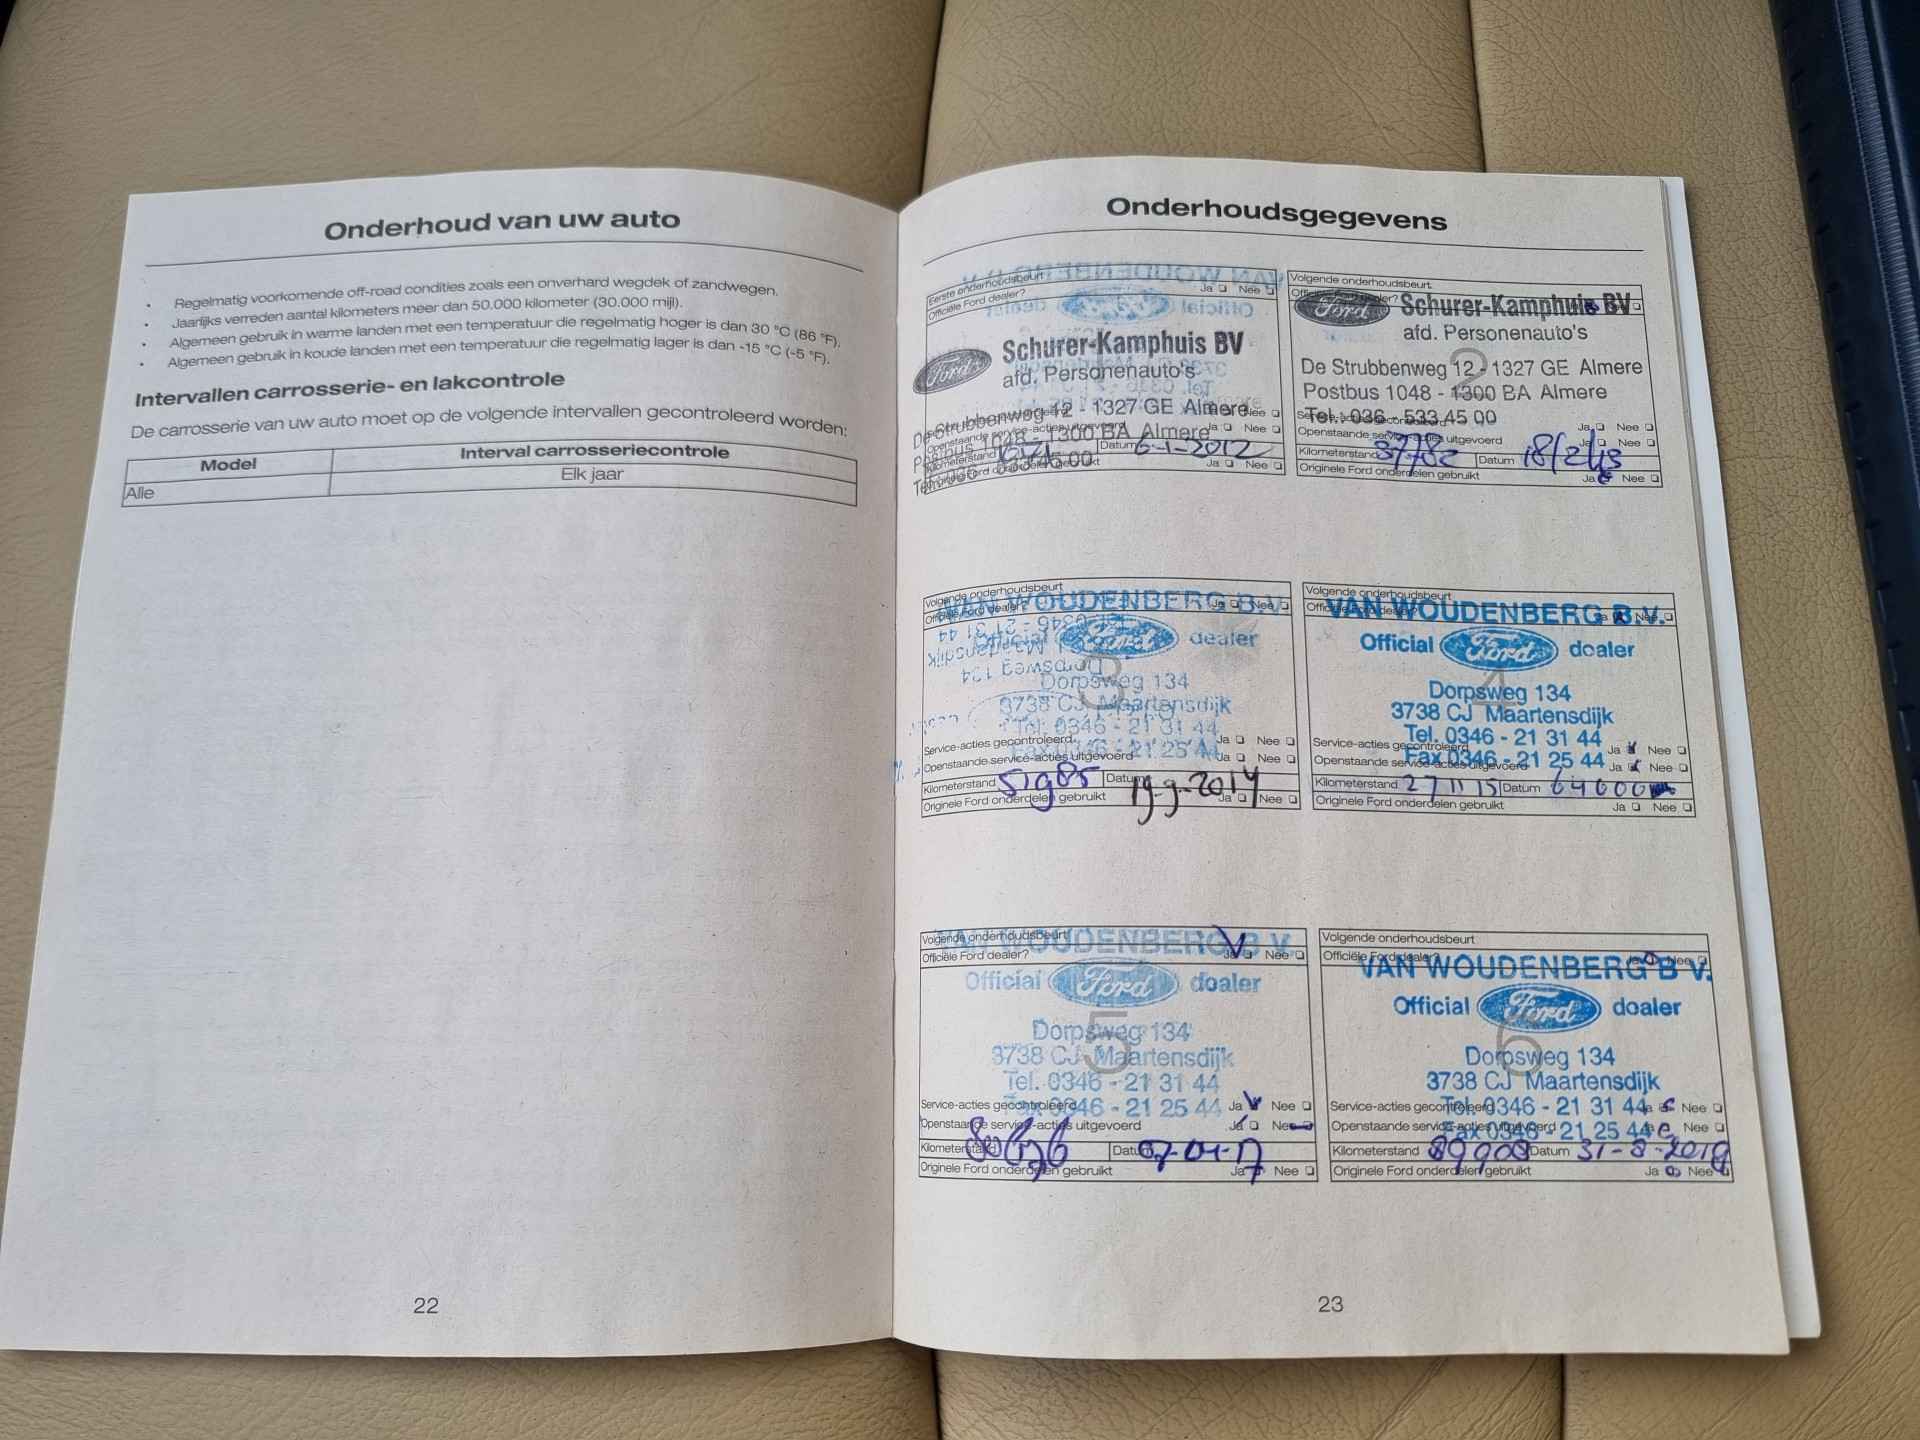 Onderhoud van uw auto
• Regelmatig voorkomende off-road condities zoals een onverhard wegdek of zandwegen.
• Jaarlijks verreden aantal kilometers meer dan 50.000 kilometer (30.000 mijl).
• Algemeen gebruik in warme landen met een temperatuur die regelmatig hoger is dan 30 °C (86 °F).
• Algemeen gebruik in koude landen met een temperatuur die regelmatig lager is dan -15 °C (-5 °F).
Intervallen carrosserie- en lakcontrole
De carrosserie van uw auto moet op de volgende intervallen gecontroleerd worden:
Model Interval carrosseriecontrole
Alle Elk jaar
22
Onderhoudsgegevens
Eerste onderhoudsbeurt
Officiële Ford dealer? Ja Nee
Ford Schurer-Kamphuis BV
afd. Personenauto's
De Strubbenweg 12 - 1327 GE Almere
Postbus 1048 - 1300 BA Almere
Openstaande service-acties uitgevoerd Ja Nee
Kilometerstand Datum 6-1-2012
Originele Ford onderdelen gebruikt Ja Nee
Volgende onderhoudsbeurt
Ford Schurer-Kamphuis BV
afd. Personenauto's
2
De Strubbenweg 12 - 1327 GE Almere
Postbus 1048 - 1300 BA Almere
Tel.: 036 - 533 45 00
Ja Nee
Openstaande service-acties uitgevoerd Ja Nee
Kilometerstand 37782 Datum 18/2/13
Originele Ford onderdelen gebruikt Ja Nee
Volgende onderhoudsbeurt
Officiële Ford dealer? Ja Nee
VAN WOUDENBERG B.V.
Ford dealer
3
Dorpsweg 134
3738 CJ Maartensdijk
Tel. 0346 - 21 31 44
Fax 0346 - 21 25 44
Service-acties gecontroleerd Ja Nee
Openstaande service-acties uitgevoerd Ja Nee
Kilometerstand 51985 Datum 19-9-2014
Originele Ford onderdelen gebruikt Ja Nee
Volgende onderhoudsbeurt
Officiële Ford dealer? Ja Nee
VAN WOUDENBERG B.V.
Official Ford dealer
4
Dorpsweg 134
3738 CJ Maartensdijk
Tel. 0346 - 21 31 44
Fax 0346 - 21 25 44
Service-acties gecontroleerd Ja Nee
Openstaande service-acties uitgevoerd Ja Nee
Kilometerstand 27 11 15 Datum 64000
Originele Ford onderdelen gebruikt Ja Nee
Volgende onderhoudsbeurt
Officiële Ford dealer? Ja Nee
VAN WOUDENBERG B.V.
Official Ford dealer
5
Dorpsweg 134
3738 CJ Maartensdijk
Tel. 0346 - 21 31 44
Fax 0346 - 21 25 44
Service-acties gecontroleerd Ja Nee
Openstaande service-acties uitgevoerd Ja Nee
Kilometerstand Datum 07-04-17
Originele Ford onderdelen gebruikt Ja Nee
Volgende onderhoudsbeurt
Officiële Ford dealer? Ja Nee
VAN WOUDENBERG B.V.
Official Ford dealer
6
Dorpsweg 134
3738 CJ Maartensdijk
Tel. 0346 - 21 31 44
Fax 0346 - 21 25 44
Service-acties gecontroleerd Ja Nee
Openstaande service-acties uitgevoerd
Kilometerstand 89908 Datum 31-8-2018
Originele Ford onderdelen gebruikt Ja Nee
23